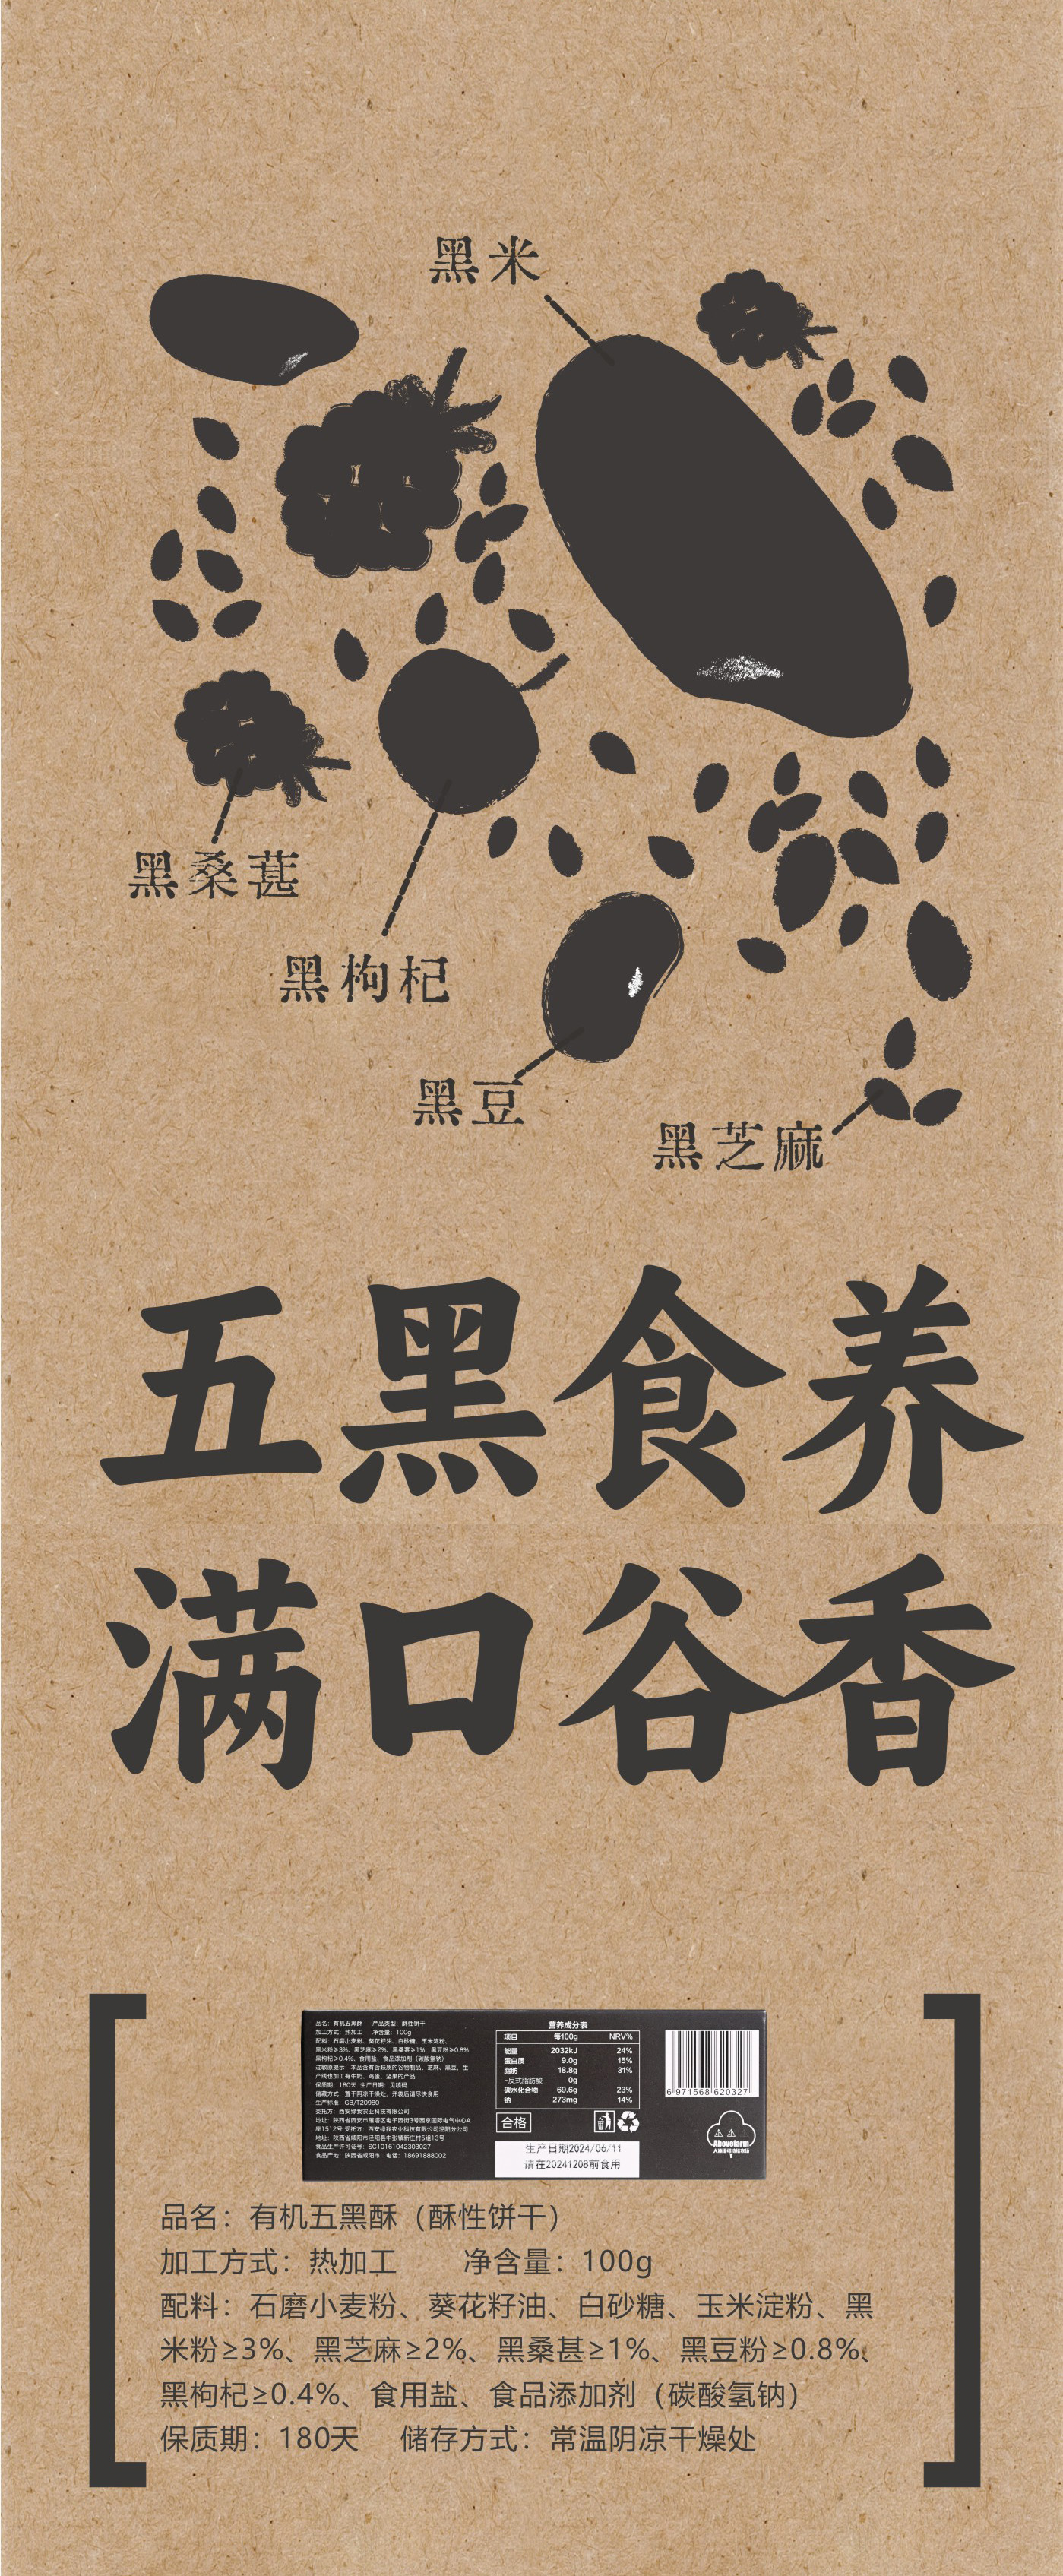 黑米
黑桑葚
黑枸杞
黑豆
黑芝麻
五黑食养
满口谷香
品名：有机五黑酥 产品类型：酥性饼干
加工方式：热加工 净含量：100g
配料：石磨小麦粉、葵花籽油、白砂糖、玉米淀粉、
黑米粉≥3%、黑芝麻≥2%、黑桑葚≥1%、黑豆粉≥0.8%
黑枸杞≥0.4%、食用盐、食品添加剂（碳酸氢钠）
过敏原提示：本品含有含麸质的谷物制品、芝麻、黑豆，生
产线也加工有牛奶、鸡蛋、坚果的产品
保质期：180天 生产日期：见喷码
储藏方式：置于阴凉干燥处，开袋后请尽快食用
生产标准：GB/T20980
委托方：西安绿我农业科技有限公司
地址：陕西省西安市雁塔区电子西街3号西京国际电气中心A
座1512号 受托方：西安绿我农业科技有限公司泾阳分公司
地址：陕西省咸阳市泾阳县中张镇新庄村5组13号
食品生产许可证号：SC10161042303027
食品产地：陕西省咸阳市 电话：18691888002
营养成分表
项目 每100g NRV%
能量 2032kJ 24%
蛋白质 9.0g 15%
脂肪 18.8g 31%
-反式脂肪酸 0g
碳水化合物 69.6g 23%
钠 273mg 14%
合格
生产日期2024/06/11
请在20241208前食用
6 971568 620327
Abovefarm
品名：有机五黑酥（酥性饼干）
加工方式：热加工 净含量：100g
配料：石磨小麦粉、葵花籽油、白砂糖、玉米淀粉、黑
米粉≥3%、黑芝麻≥2%、黑桑甚≥1%、黑豆粉≥0.8%、
黑枸杞≥0.4%、食用盐、食品添加剂（碳酸氢钠）
保质期：180天 储存方式：常温阴凉干燥处